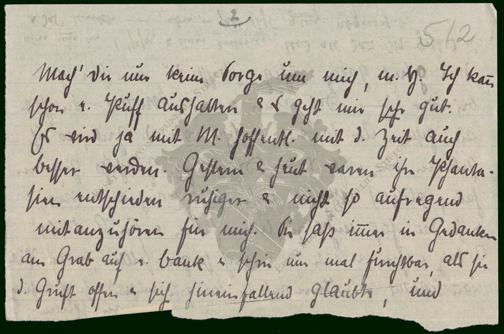 2
5/2
Mach' Dir nur keine Sorge um mich, m. H. Ich kan̄
schon e. Puff aushalten & es geht mir sehr gut.
Es wird ja mit M. hoffentl. mit d. Zeit auch
besser werden. Gestern & heut waren ihre Phanta-
sien entschieden ruhiger & nicht so aufregend
mitanzuhören für mich. Sie saß im̄er in Gedanken
am Grab auf e. Bank & schrie nur mal furchtbar, als sie
d. Gruft offen & sich hineinfallend glaubte, und